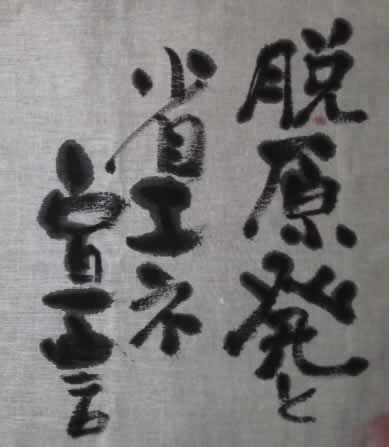 脱原発と
省エネ
宣言